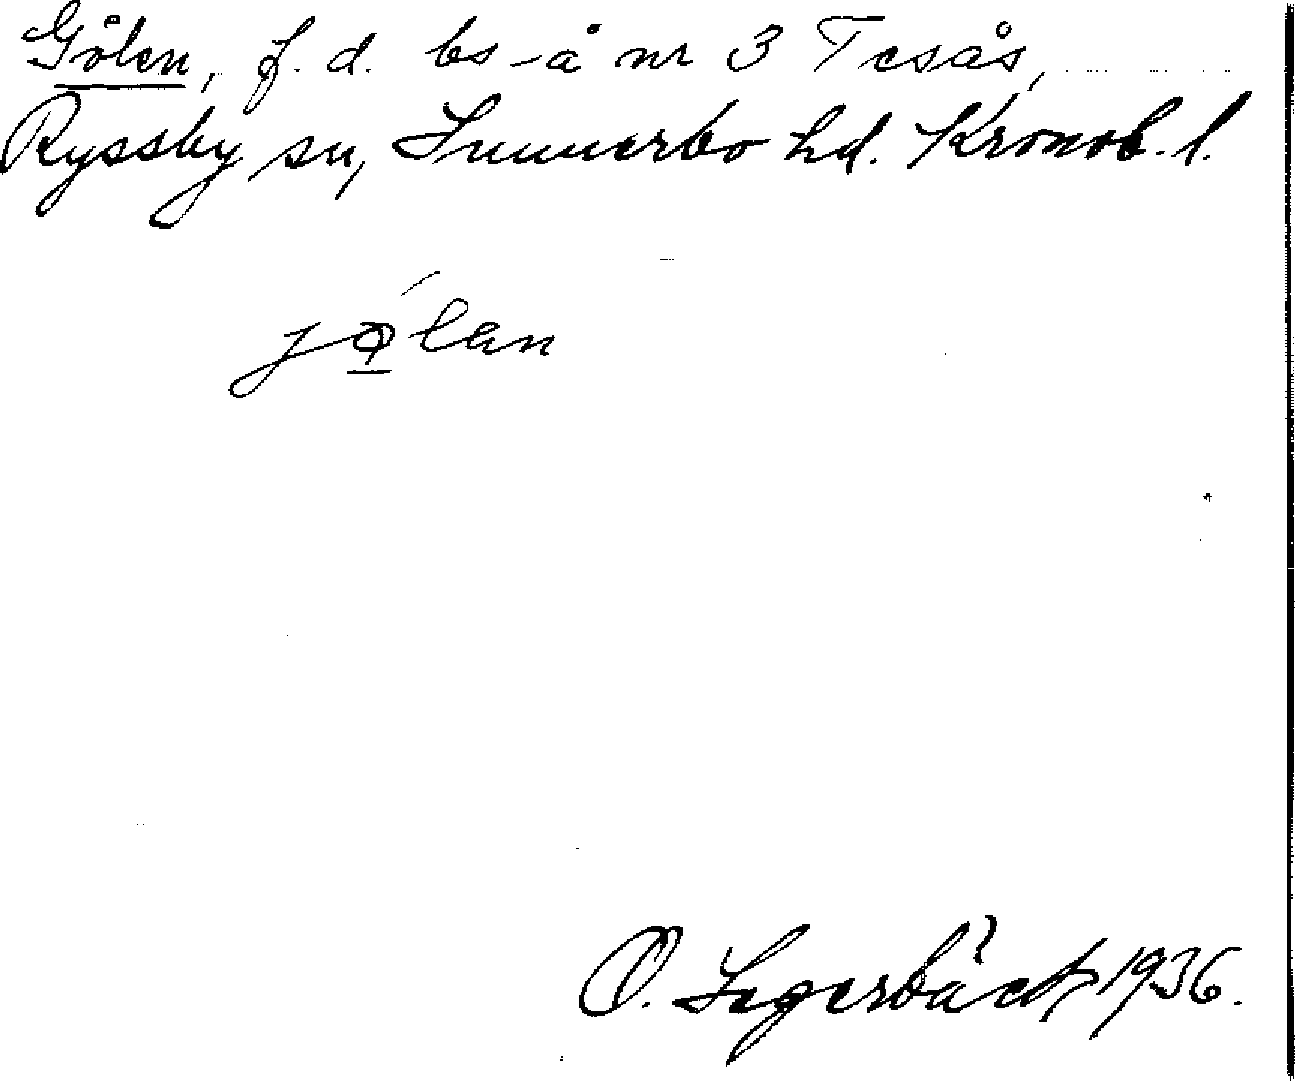 Gölen, f. d. bs-å nr 3 Tesås,
Ryssby sn, Sunnerbo hd. Kronob. l.
jǿ̱lan
O. Segerbäck 1936.